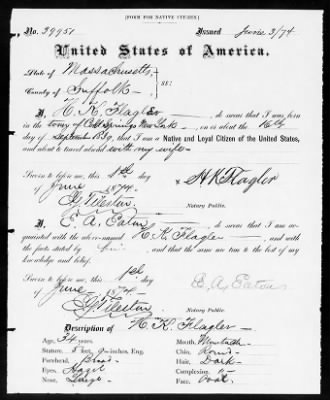 [FORM FOR NATIVE CITIZEN]
No. 39951 Issued June 3/74
United States of America.
State of Massachusetts
County of Suffolk ss:
I, H. K. Flagler, do swear that I was born
in the town of Springs New York, on or about the 16th
day of September 1839, that I am a Native and Loyal Citizen of the United States,
and about to travel abroad with my wife
Sworn to before me, this 1st day
of June 1874. H K Flagler
Notary Public.
I, E. A. Eaton, do swear that I am ac-
quainted with the above-named H. K. Flagler, and with
the facts stated by him, and that the same are true to the best of my
knowledge and belief.
Sworn to before me, this 1st day
of June 1874. E. A. Eaton
Notary Public.
Description of H. K. Flagler
Age, 34 years Mouth, Mustache
Stature, 5 feet, 9 inches, Eng. Chin, Round
Forehead, Broad Hair, Dark
Eyes, Hazel Complexion,
Nose, Large Face, Oval